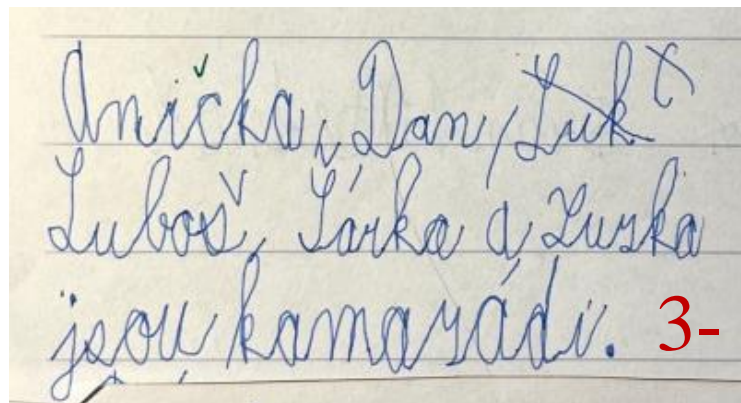 Anička, Dan, Luk
Luboš, Šárka a Zuzka
jsou kamarádi. 3-